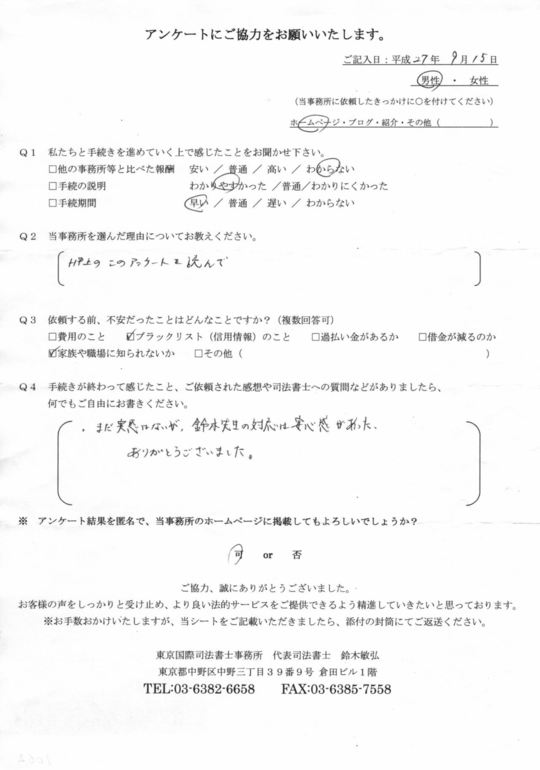 アンケートにご協力をお願いいたします。
ご記入日：平成27年 9月15日
男性 ・ 女性
（当事務所に依頼したきっかけに○を付けてください）
ホームページ・ブログ・紹介・その他（　　　　　　）
Q1　私たちと手続きを進めていく上で感じたことをお聞かせ下さい。
□他の事務所等と比べた報酬　安い ／ 普通 ／ 高い ／ わからない
□手続の説明　わかりやすかった ／普通／わかりにくかった
□手続期間　早い ／ 普通 ／ 遅い ／ わからない
Q2　当事務所を選んだ理由についてお教えください。
HP上の このアンケートを読んで
Q3　依頼する前、不安だったことはどんなことですか？（複数回答可）
□費用のこと　☑ブラックリスト（信用情報）のこと　□過払い金があるか　□借金が減るのか
☑家族や職場に知られないか　□その他（　　　　　　）
Q4　手続きが終わって感じたこと、ご依頼された感想や司法書士への質問などがありましたら、
何でもご自由にお書きください。
・まだ実感はないが、鈴木先生の対応は安心感があった、
ありがとうございました。
※ アンケート結果を匿名で、当事務所のホームページに掲載してもよろしいでしょうか？
可 or 否
ご協力、誠にありがとうございました。
お客様の声をしっかりと受け止め、より良い法的サービスをご提供できるよう精進していきたいと思っております。
※お手数おかけいたしますが、当シートをご記載いただきましたら、添付の封筒にてご返送ください。
東京国際司法書士事務所　代表司法書士　鈴木敏弘
東京都中野区中野三丁目３９番９号 倉田ビル１階
TEL:03-6382-6658　FAX:03-6385-7558